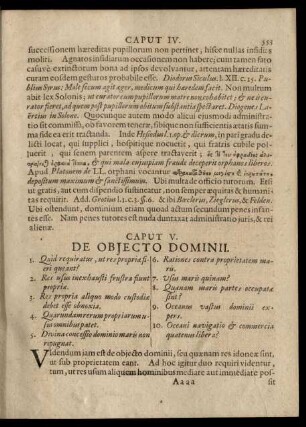 CAPUT IV.
353
successionem hæreditas pupillorum non pertinet; hisce nullas insidias
moliti. Agnatos insidiarum occasionem non habere; cum tamen fato
casuve extinctorum bona ad ipsos devolvantur, attentam hæreditatis
curam eosdem gesturos probabile esse. Diodorus Siculus. l. XII. c. 15. Pu-
blius Syrus: Male secum agit æger, medicum qui hæredem facit. Non multum
abit lex Solonis; ut curator cum pupillorum matre non cohabitet; & ne cura-
tor fieret, ad quem post pupillorum obitum substantia spectaret. Diogenes La-
ertius in Solone. Quocunque autem modo alicui ejusmodo administra-
tio sit commissa, ob favorem teneræ, sibique non sufficientis ætatis sum-
ma fide ea erit tractanda. Inde Hesiodus l. op. & dierum, in pari gradu de-
licti locat, qui supplici, hospitique nocuerit, qui fratris cubile pol-
luerit, qui senem parentem aspere tractaverit;
& qui mala cujuspiam fraude inceperit orphanos liberos:
Apud Platonem de LL. orphani vocantur
depositum maximum & sanctissimum. Ubi multa de officio tutorum. Etsi
ut gratis, aut cum dispendio sustineatur, non semper æquitas & humani-
tas requirat. Add. Grotius l. 1. c. 3. §. 6. & ibi Bœclerus, Zieglerus, & Felden.
Ubi ostenditur, dominium etiam quoad actum secundum penes infan-
tes esse. Nam penes tutores est nuda duntaxat administratio juris, & rei
alienæ.
CAPUT V.
DE OBJECTO DOMINII.
1. Quid requiratur, ut res propria fi-
eri queant?
2. Res usus inexhausti frustra fiunt
propria.
3. Res propria aliquo modo custodia
debet esse obnoxia.
4. Quarundam rerum propriarum u-
sus omnibus patet.
5. Divina concessio dominio maris non
repugnat.
6. Rationes contra proprietatem ma-
ris.
7. Usus maris quinam?
8. Quænam maris partes occupatæ
sint?
9. Oceanus vastus dominii ex-
pers.
10. Oceani navigatio & commercia
quatenus libera?
Videndum jam est de objecto dominii, seu quænam res idoneæ sint,
ut sub proprietatem eant. Ad hoc igitur duo requiri videntur,
tum, ut res usum aliquem hominibus mediate aut immediate pos-
Aaaa
sit